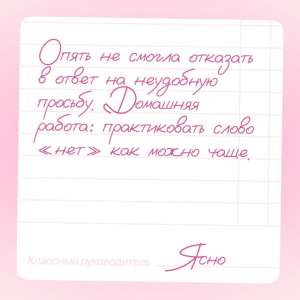 Опять не смогла отказать
в ответ на неудобную
просьбу. Домашняя
работа: практиковать слово
«нет» как можно чаще.
Классный руководитель
Ясно